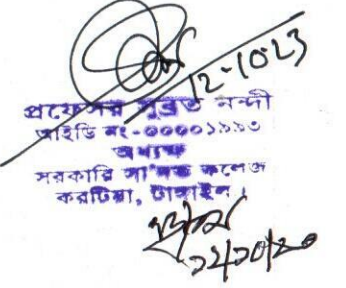 12-10-23
প্রফেসর সুব্রত নন্দী
আইডি নং-০০০০১৯৯৩
অধ্যক্ষ
সরকারি সা'দত কলেজ
করটিয়া, টাঙ্গাইল।